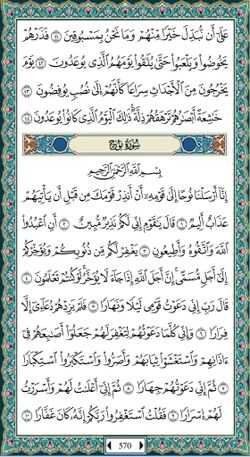 عَلَىٰٓ أَن نُّبَدِّلَ خَيْرًا مِّنْهُمْ وَمَا نَحْنُ بِمَسْبُوقِينَ ٤١ فَذَرْهُمْ
يَخُوضُوا۟ وَيَلْعَبُوا۟ حَتَّىٰ يُلَٰقُوا۟ يَوْمَهُمُ ٱلَّذِى يُوعَدُونَ ٤٢ يَوْمَ
يَخْرُجُونَ مِنَ ٱلْأَجْدَاثِ سِرَاعًا كَأَنَّهُمْ إِلَىٰ نُصُبٍ يُوفِضُونَ ٤٣
خَٰشِعَةً أَبْصَٰرُهُمْ تَرْهَقُهُمْ ذِلَّةٌ ذَٰلِكَ ٱلْيَوْمُ ٱلَّذِى كَانُوا۟ يُوعَدُونَ ٤٤
سُورَةُ نُوحٍ
بِسْمِ ٱللَّهِ ٱلرَّحْمَٰنِ ٱلرَّحِيمِ
إِنَّآ أَرْسَلْنَا نُوحًا إِلَىٰ قَوْمِهِۦٓ أَنْ أَنذِرْ قَوْمَكَ مِن قَبْلِ أَن يَأْتِيَهُمْ
عَذَابٌ أَلِيمٌ ١ قَالَ يَٰقَوْمِ إِنِّى لَكُمْ نَذِيرٌ مُّبِينٌ ٢ أَنِ ٱعْبُدُوا۟
ٱللَّهَ وَٱتَّقُوهُ وَأَطِيعُونِ ٣ يَغْفِرْ لَكُم مِّن ذُنُوبِكُمْ وَيُؤَخِّرْكُمْ
إِلَىٰٓ أَجَلٍ مُّسَمًّى إِنَّ أَجَلَ ٱللَّهِ إِذَا جَآءَ لَا يُؤَخَّرُ لَوْ كُنتُمْ تَعْلَمُونَ ٤
قَالَ رَبِّ إِنِّى دَعَوْتُ قَوْمِى لَيْلًا وَنَهَارًا ٥ فَلَمْ يَزِدْهُمْ دُعَآءِىٓ إِلَّا
فِرَارًا ٦ وَإِنِّى كُلَّمَا دَعَوْتُهُمْ لِتَغْفِرَ لَهُمْ جَعَلُوٓا۟ أَصَٰبِعَهُمْ فِىٓ
ءَاذَانِهِمْ وَٱسْتَغْشَوْا۟ ثِيَابَهُمْ وَأَصَرُّوا۟ وَٱسْتَكْبَرُوا۟ ٱسْتِكْبَارًا
٧ ثُمَّ إِنِّى دَعَوْتُهُمْ جِهَارًا ٨ ثُمَّ إِنِّىٓ أَعْلَنتُ لَهُمْ وَأَسْرَرْتُ
لَهُمْ إِسْرَارًا ٩ فَقُلْتُ ٱسْتَغْفِرُوا۟ رَبَّكُمْ إِنَّهُۥ كَانَ غَفَّارًا ١٠
570